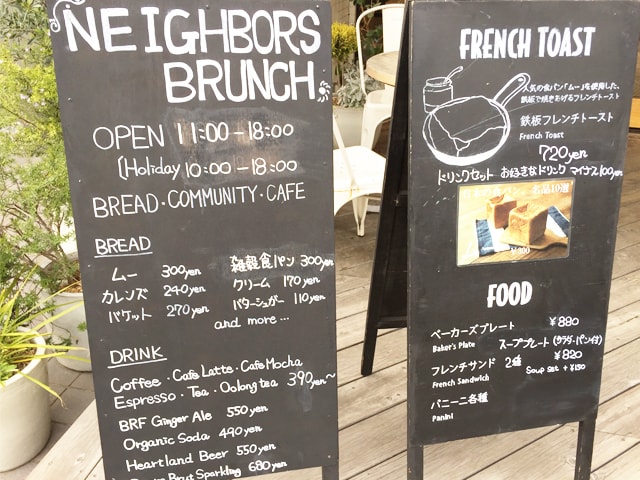 NEIGHBORS
BRUNCH
OPEN 11:00-18:00
(Holiday 10:00-18:00
BREAD・COMMUNITY・CAFE
BREAD
ムー 300yen 雑穀食パン 300yen
カレンズ 240yen クリーム 170yen
バケット 270yen バターシュガー 110yen
and more...
DRINK
Coffee・Cafe Latte・Cafe Mocha
Espresso・Tea・Oolong tea 390yen~
BRF Ginger Ale 550yen
Organic Soda 490yen
Heartland Beer 550yen
Brut Sparkling 680yen
FRENCH TOAST
人気の食パン「ムー」を使用した、
鉄板で焼きあげるフレンチトースト
鉄板フレンチトースト
French Toast
720yen
ドリンクセット お好きなドリンク マイナス100yen
食パン。名品10選
¥300
FOOD
ベーカーズプレート ¥880
Baker's Plate スーププレート (サラダ・パン付)
フレンチサンド 2種 ¥820
French Sandwich Soup set +¥150
パニーニ各種
Panini